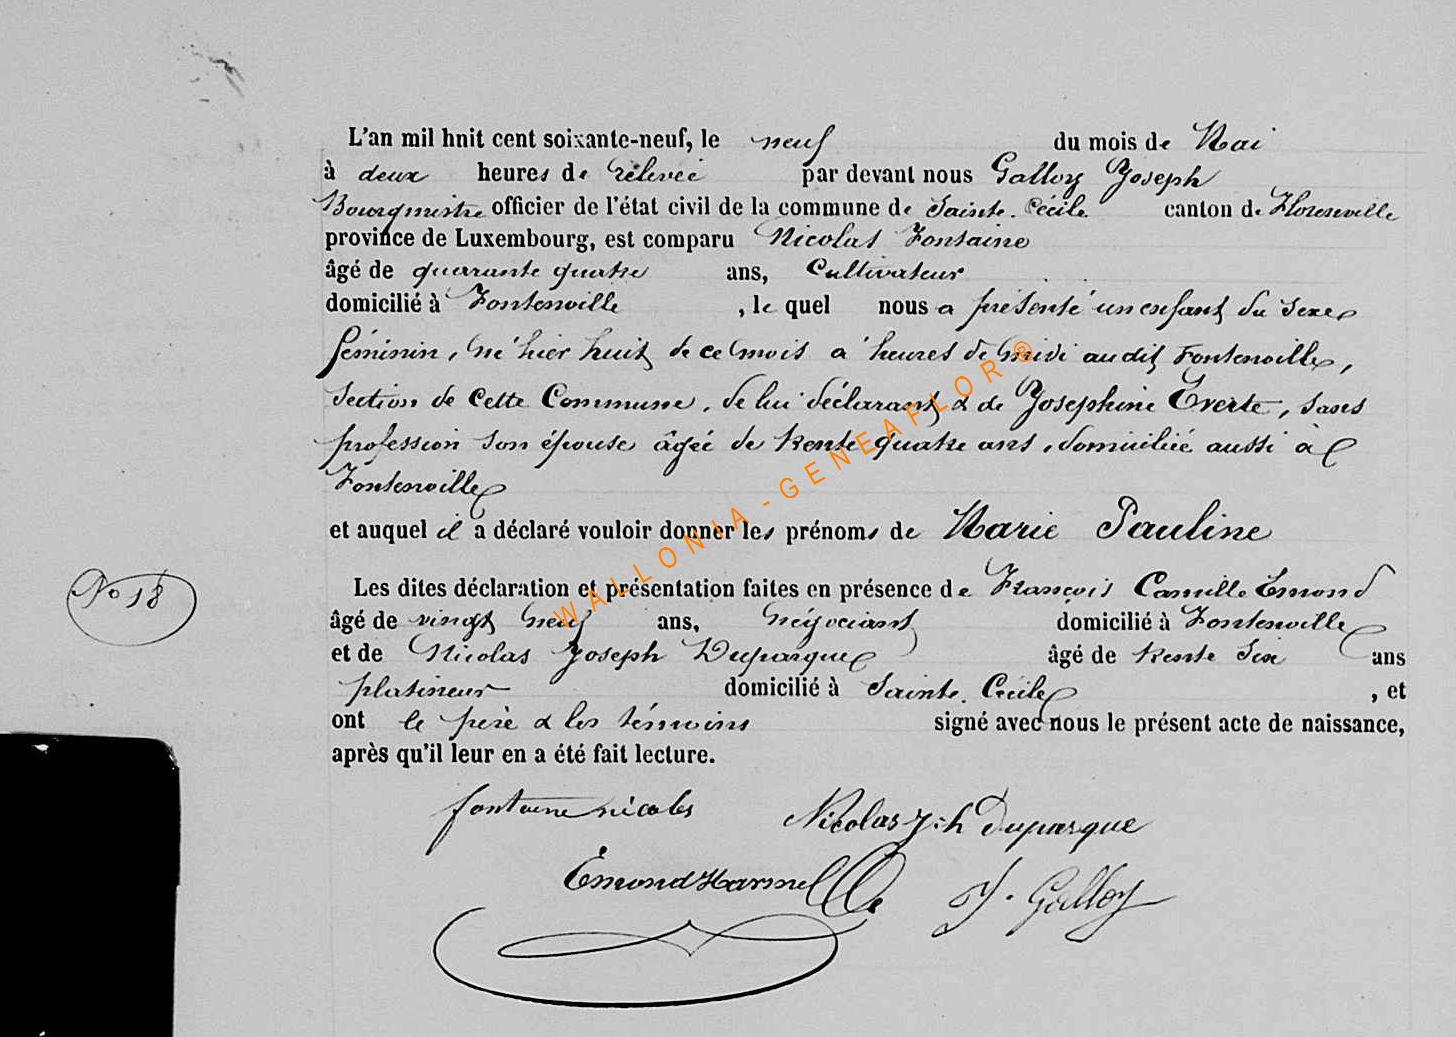 L'an mil huit cent soixante-neuf, le neuf du mois de Mai
à deux heures de rélevée par devant nous Galloy Joseph
Bourgmestre officier de l'état civil de la commune de Sainte-Cécile canton de Florenville
province de Luxembourg, est comparu Nicolas Fontaine
âgé de quarante quatre ans, Cultivateur
domicilié à Fontenoille , le quel nous a présenté un enfant du sexe
féminin, né hier huit de ce mois a heures de midi audit Fontenoille,
section de cette Commune, de lui déclarant & de Joséphine Everte, sans
profession son épouse âgée de trente quatre ans, domiciliée aussi à
Fontenoille
et auquel il a déclaré vouloir donner les prénoms de Marie Pauline
No 18
Les dites déclaration et présentation faites en présence de François Camille Emond
âgé de vingt neuf ans, négociant domicilié à Fontenoille
et de Nicolas Joseph Duparque âgé de trente Six ans
platineur domicilié à Sainte-Cécile , et
ont le père & les témoins signé avec nous le présent acte de naissance,
après qu'il leur en a été fait lecture.
fontaine nicolas Nicolas Jph Duparque
Emond Harmel J. Galloy
WALLONIA-GENEAFLOR®